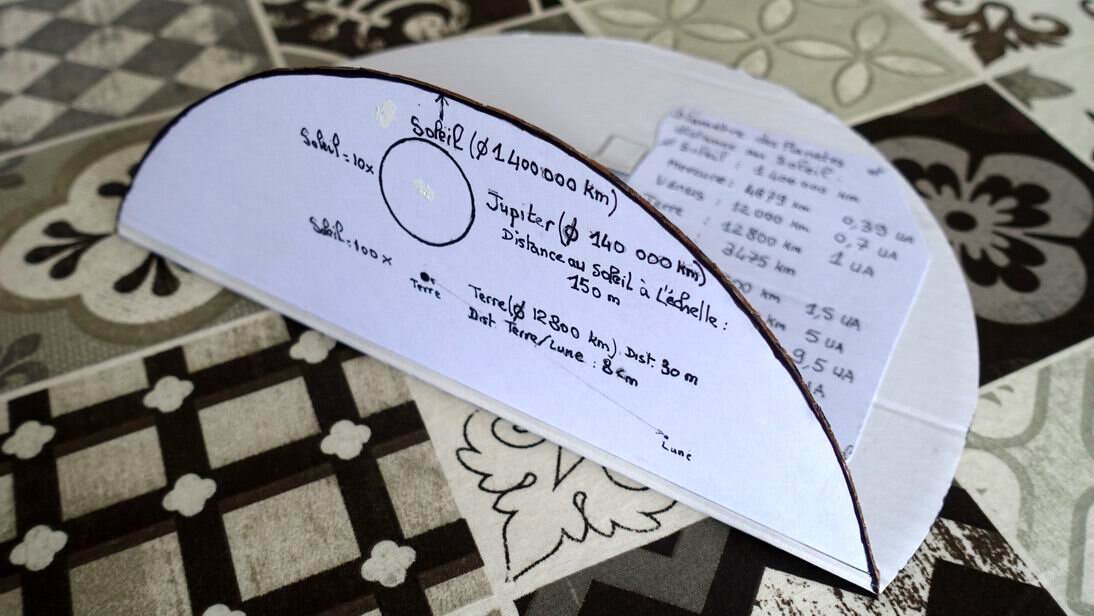 Soleil (ø 1 400 000 km)
Soleil = 10x
Jupiter (ø 140 000 km)
Distance au Soleil à l'échelle :
150 m
Soleil = 100x
Terre
Terre (ø 12 800 km) Dist. 30 m
Dist. Terre/Lune : 8 cm
Lune
des Planètes et
distance au Soleil
Soleil : 1 400 000 km
Mercure : 4879 km 0,39 UA
Venus : 12 000 km 0,7 UA
Terre : 12 800 km 1 UA
3475 km
km 1,5 UA
km 5 UA
9,5 UA
UA